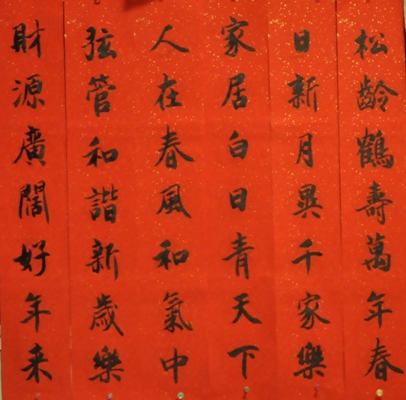 松齡鶴壽萬年春
日新月異千家樂
家居白日青天下
人在春風和氣中
弦管和諧新歲樂
財源廣闊好年来